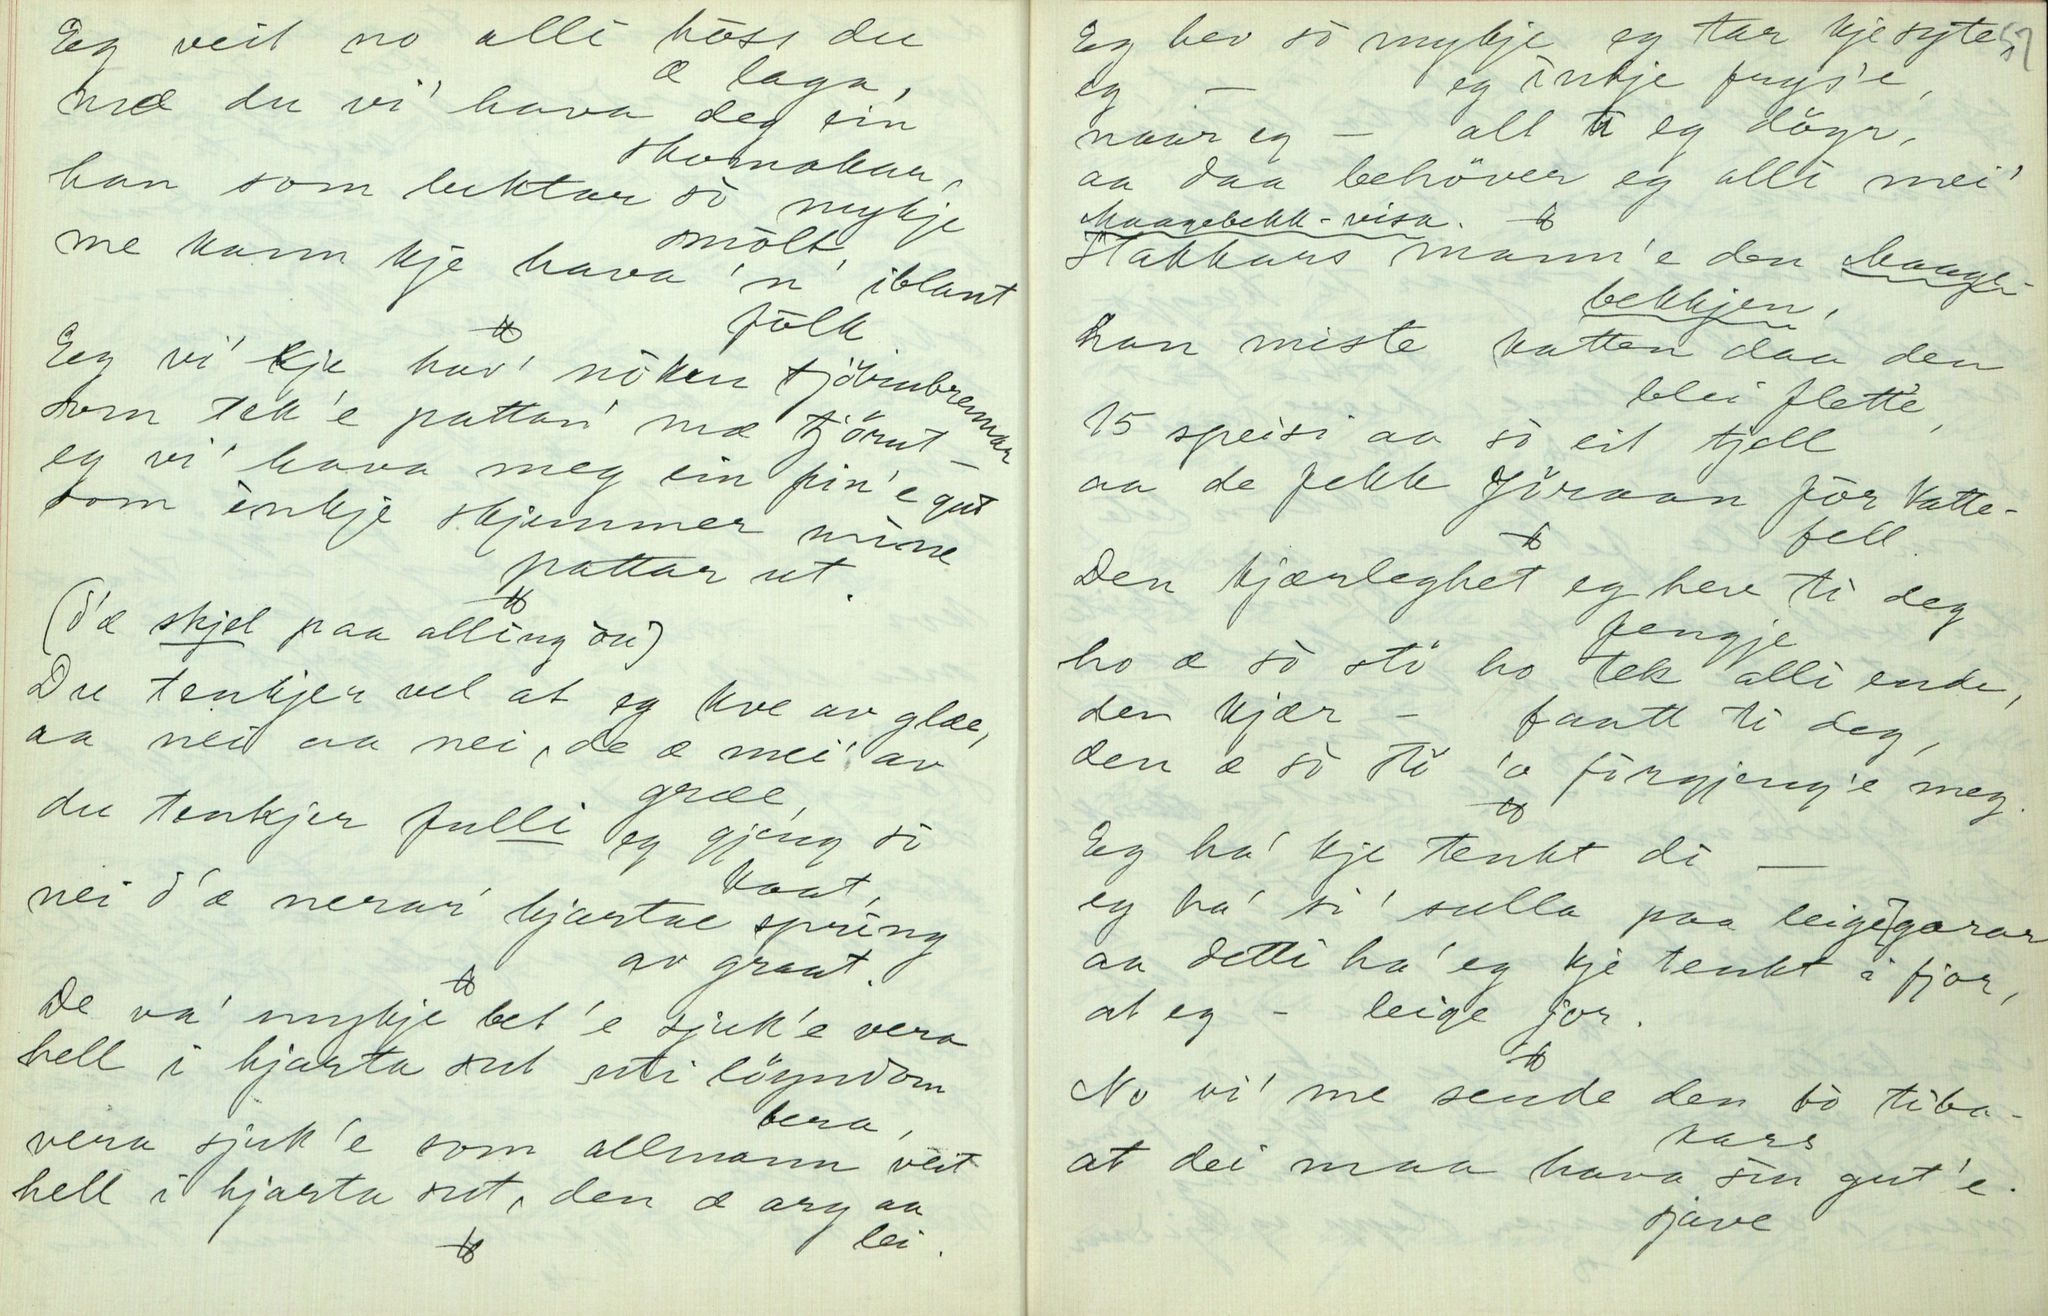 Eg veit no alli höss du
æ laga,
mæ du vi' hava deg ein
skomakar,
han som luktar sò mykje
smòlt,
me kann kje hava 'n' iblant
fòlk
Eg vi' kje hav' nòken tjörubremar
som tek'e pattan' mæ tjörut –
eg vi' hava meg ein fin'e gut
som inkje skjemmer mine
pattar ut.
(d'æ skjel paa alling òu)
Du tenkjer vel at eg kve av glæe,
aa nei aa nei, de æ mei' av
græe,
du tenkjer fulli eg gjeng sò
kaat,
nei d'æ nerar' hjartae spring
av graat.
De va' mykje bet'e sjuk'e vera
hell i hjarta sut uti löyndom
bera,
vera sjuk'e som allmann veit
hell i hjarta sut, den æ arg aa
lei.
57
Eg hev sò mykje eg tar kje syte,
eg – eg inkje frys'e,
naar eg – all ti eg döyr,
aa daa behöver eg alli mei'
Maagebekk-visa.
Stakkars mann'e den Maage-
bekkjen,
han miste katten daa den
blei flette,
15 speisi aa sò eit tjell
aa de fekk Jöraan för katte-
fell.
Den kjærleghet eg heve ti deg
fengje
ho æ sò stö ho tek alli ende,
den kjær – faatt ti deg,
den æ sò stö 'o fòrgjeng'e meg.
Eg ha' kje tenkt di –
eg ha' si' sulla paa leigegarar
aa detti ha' eg kje tenkt i fjor,
at eg – leige jor.
No vi' me sende den bò tiba-
kars
at dei maa hava sin gut'e.
sjave